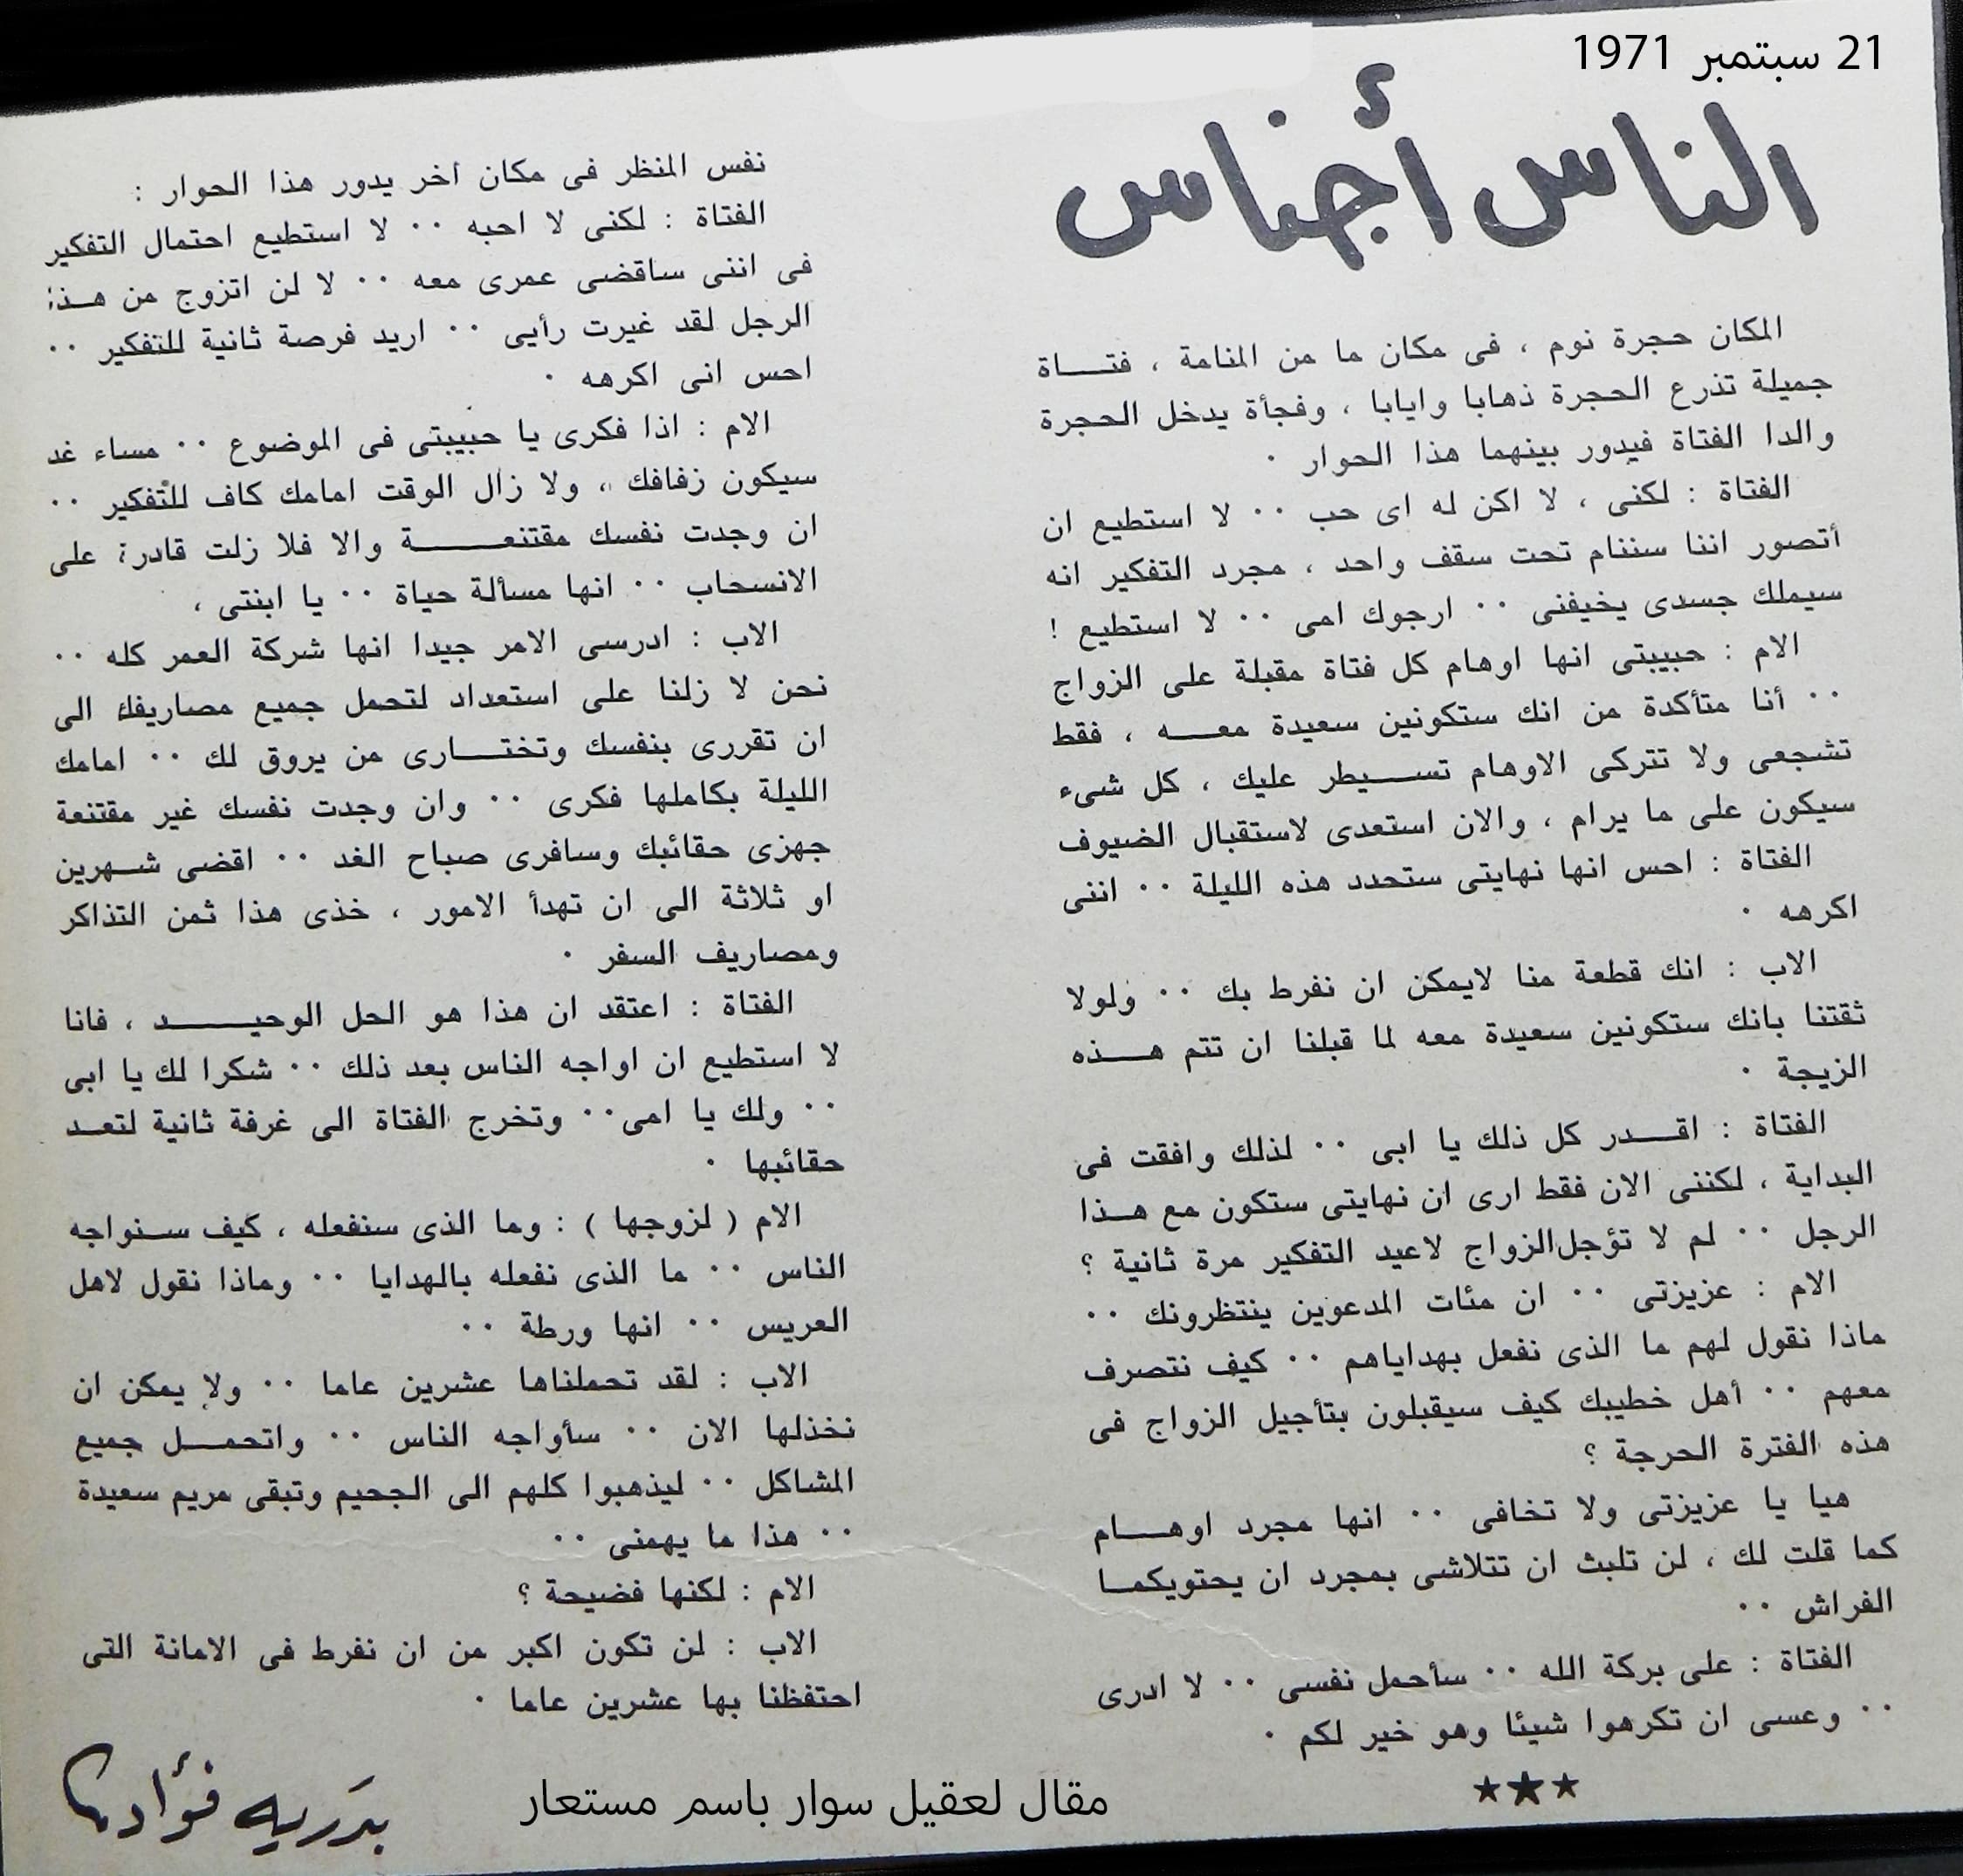 21 سبتمبر 1971
الناس أجناس
المكان حجرة نوم ، فى مكان ما من المنامة ، فتاة
جميلة تذرع الحجرة ذهابا وايابا ، وفجأة يدخل الحجرة
والدا الفتاة فيدور بينهما هذا الحوار ٠
الفتاة : لكنى ، لا اكن له اى حب ٠٠ لا استطيع ان
أتصور اننا سننام تحت سقف واحد ، مجرد التفكير انه
سيملك جسدى يخيفنى ٠٠ ارجوك امى ٠٠ لا استطيع !
الام : حبيبتى انها اوهام كل فتاة مقبلة على الزواج
٠٠ أنا متأكدة من انك ستكونين سعيدة معه ، فقط
تشجعى ولا تتركى الاوهام تسيطر عليك ، كل شىء
سيكون على ما يرام ، والان استعدى لاستقبال الضيوف
الفتاة : احس انها نهايتى ستحدد هذه الليلة ٠٠ اننى
اكرهه ٠
الاب : انك قطعة منا لايمكن ان نفرط بك ٠٠ ولولا
ثقتنا بانك ستكونين سعيدة معه لما قبلنا ان تتم هذه
الزيجة ٠
الفتاة : اقدر كل ذلك يا ابى ٠٠ لذلك وافقت فى
البداية ، لكننى الان فقط ارى ان نهايتى ستكون مع هذا
الرجل ٠٠ لم لا تؤجل الزواج لاعيد التفكير مرة ثانية ؟
الام : عزيزتى ٠٠ ان مئات المدعوين ينتظرونك ٠٠
ماذا نقول لهم ما الذى نفعل بهداياهم ٠٠ كيف نتصرف
معهم ٠٠ أهل خطيبك كيف سيقبلون بتأجيل الزواج فى
هذه الفترة الحرجة ؟
هيا يا عزيزتى ولا تخافى ٠٠ انها مجرد اوهام
كما قلت لك ، لن تلبث ان تتلاشى بمجرد ان يحتويكما
الفراش ٠٠
الفتاة : على بركة الله ٠٠ سأحمل نفسى ٠٠ لا ادرى
٠٠ وعسى ان تكرهوا شيئا وهو خير لكم ٠
★★★
نفس المنظر فى مكان أخر يدور هذا الحوار :
الفتاة : لكنى لا احبه ٠٠ لا استطيع احتمال التفكير
فى اننى ساقضى عمرى معه ٠٠ لا لن اتزوج من هذا
الرجل لقد غيرت رأيى ٠٠ اريد فرصة ثانية للتفكير ٠٠
احس انى اكرهه ٠
الام : اذا فكرى يا حبيبتى فى الموضوع ٠٠ مساء غد
سيكون زفافك ، ولا زال الوقت امامك كاف للتفكير ٠٠
ان وجدت نفسك مقتنعة والا فلا زلت قادرة على
الانسحاب ٠٠ انها مسألة حياة ٠٠ يا ابنتى ،
الاب : ادرسى الامر جيدا انها شركة العمر كله ٠٠
نحن لا زلنا على استعداد لتحمل جميع مصاريفك الى
ان تقررى بنفسك وتختارى من يروق لك ٠٠ امامك
الليلة بكاملها فكرى ٠٠ وان وجدت نفسك غير مقتنعة
جهزى حقائبك وسافرى صباح الغد ٠٠ اقضى شهرين
او ثلاثة الى ان تهدأ الامور ، خذى هذا ثمن التذاكر
ومصاريف السفر ٠
الفتاة : اعتقد ان هذا هو الحل الوحيد ، فانا
لا استطيع ان اواجه الناس بعد ذلك ٠٠ شكرا لك يا ابى
٠٠ ولك يا امى٠٠ وتخرج الفتاة الى غرفة ثانية لتعد
حقائبها ٠
الام ( لزوجها ) : وما الذى سنفعله ، كيف سنواجه
الناس ٠٠ ما الذى نفعله بالهدايا ٠٠ وماذا نقول لاهل
العريس ٠٠ انها ورطة ٠٠
الاب : لقد تحملناها عشرين عاما ٠٠ ولا يمكن ان
نخذلها الان ٠٠ سأواجه الناس ٠٠ واتحمل جميع
المشاكل ٠٠ ليذهبوا كلهم الى الجحيم وتبقى مريم سعيدة
٠٠ هذا ما يهمنى ٠٠
الام : لكنها فضيحة ؟
الاب : لن تكون اكبر من ان نفرط فى الامانة التى
احتفظنا بها عشرين عاما ٠
بدريه فؤاد
مقال لعقيل سوار باسم مستعار